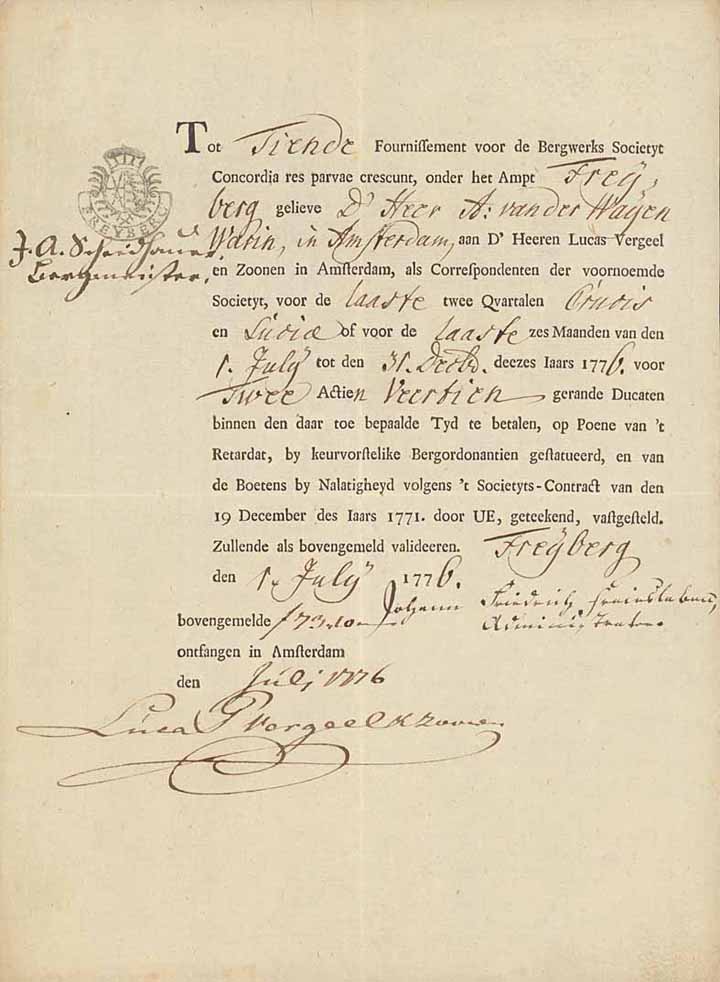 Tot Tiende Fourniſſement voor de Bergwerks Societyt
Concordja res parvae crescunt, onder het Ampt Freÿ,
berg gelieve D' Heer A: van der Waÿen
FREYBERG
Warin, in Amsterdam, aan D' Heeren Lucas Vergeel
J. A. Scheidhauer
Bergmeister.
en Zoonen in Amſterdam, als Correſpondenten der voornoemde
Societyt, voor de laaste twee Qvartalen Crucis
en Luciæ of voor de laaste zes Maanden van den
1. Julÿ tot den 31. Decbr. deezes Iaars 1776. voor
Twee Actien Veertien gerande Ducaten
binnen den daar toe bepaalde Tyd te betalen, op Poene van 't
Retardat, by keurvorſtelike Bergordonantien geſtatueerd, en van
de Boetens by Nalatigheyd volgens 't Societyts-Contract van den
19 December des Iaars 1771. door UE, geteekend, vaſtgeſteld.
Zullende als bovengemeld valideeren. Freÿberg
den 1. Julÿ 1776.
Johann Friedrich
bovengemelde f 73:10
ontfangen in Amſterdam
den Julj 1776
Lucas Vergeel & Zoonen